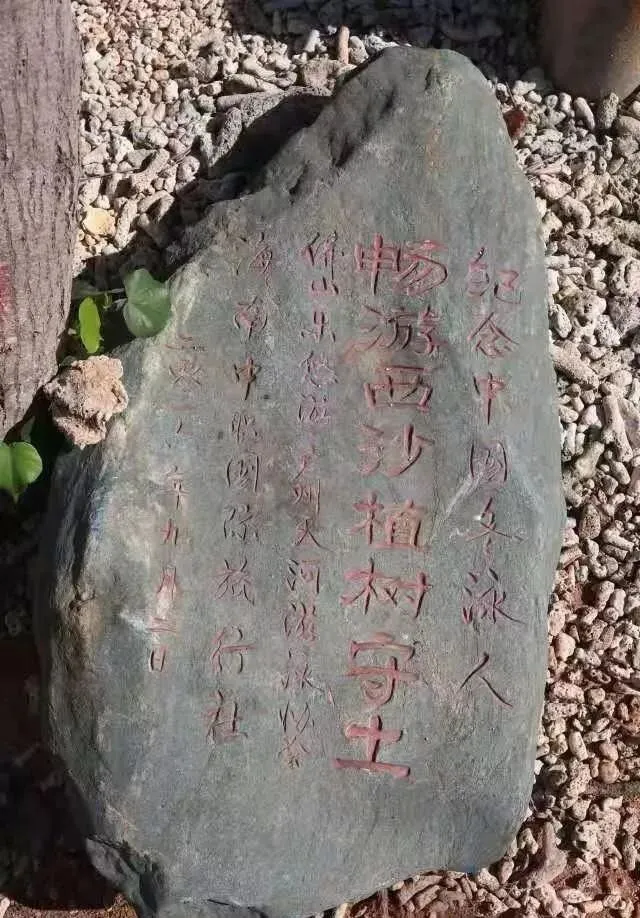 纪念中国冬泳人
畅游西沙植树守土
佛山乐悠游 广州天河游泳协会
海南中胜国际旅行社
二〇一八年九月二日